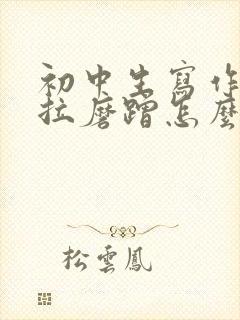 初中生寫作
拉磨蹭怎麼
松雲鳳